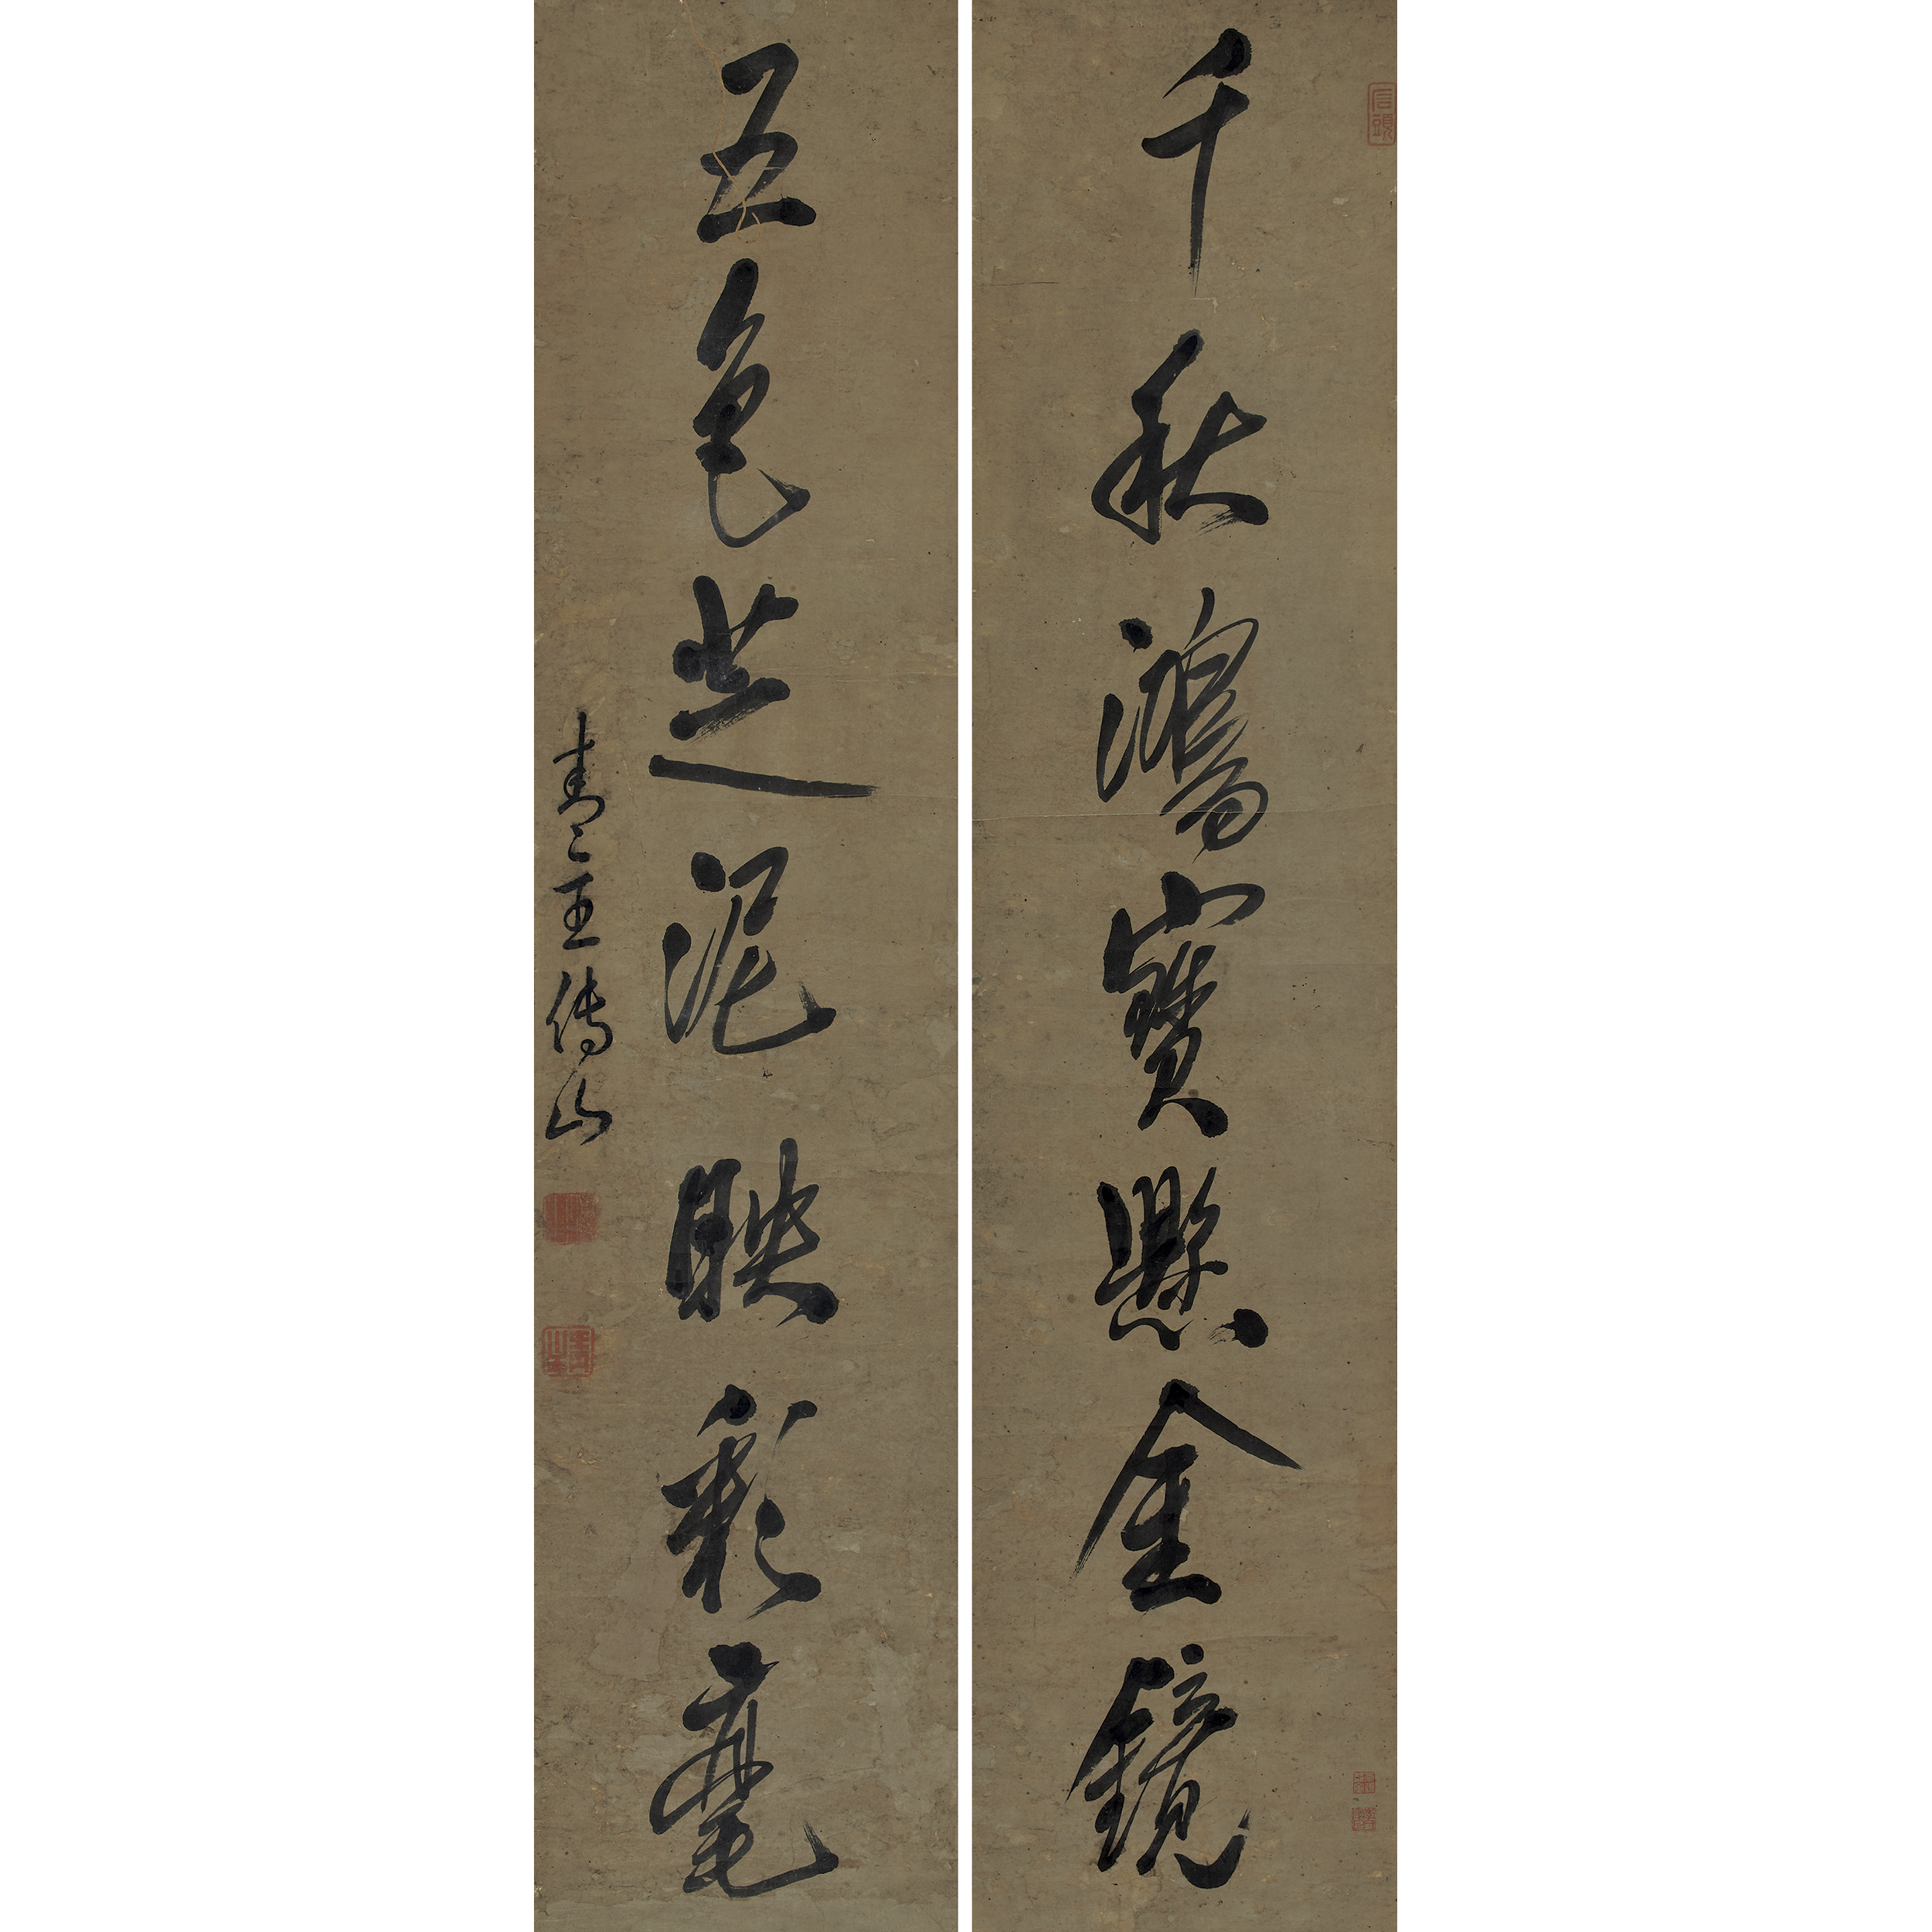 千秋鴻寶懸金鏡
五色芝泥映彩毫
青主傅山